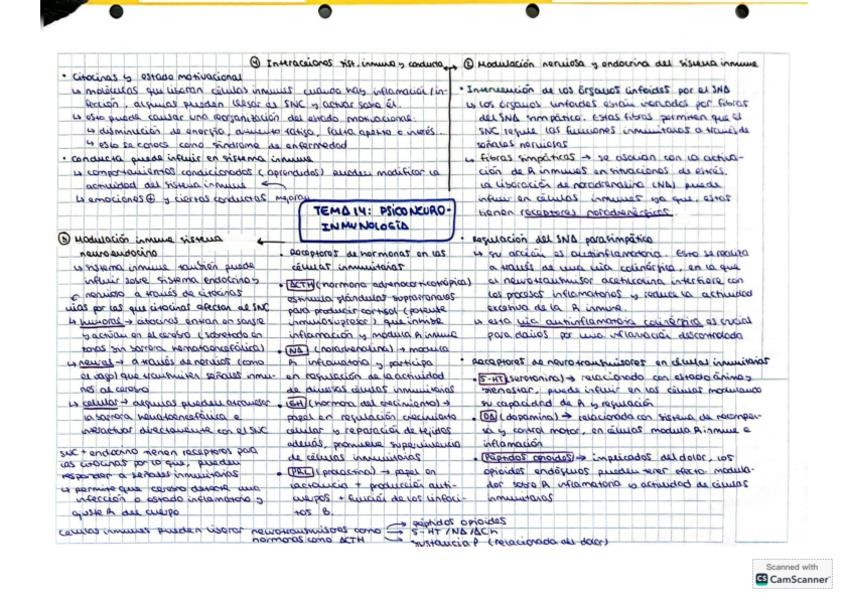 ④ Interacciones sist. inmune y conducta
• Citocinas y estado motivacional
↳ moléculas que liberan células inmunes cuando hay inflamación/in-
fección, algunas pueden llegar al SNC y actuar sobre él.
↳ esto puede causar una reorganización del estado motivacional
↳ disminución de energía, aumento fatiga, falta apetito o interés...
↳ esto se conoce como síndrome de enfermedad
• conducta puede influir en sistema inmune
↳ comportamientos condicionados (aprendidos) pueden modificar la
actividad del sistema inmune
↳ emociones ⊕ y ciertas conductas mejoran
TEMA 14: PSICONEURO-
INMUNOLOGÍA
Modulación nerviosa y endocrina del sistema inmune
• Intervención de los órganos linfoides por el SNA
↳ los órganos linfoides están inervados por fibras
del SNA simpático. Estas fibras permiten que el
SNC regule las funciones inmunitarias a través de
señales nerviosas
↳ fibras simpáticas → se asocian con la activa-
ción de R inmunes en situaciones de estrés.
la liberación de noradrenalina (NA) puede
influir en células inmunes ya que, estas
tienen receptores noradrenérgicos
• Regulación del SNA parasimpático
↳ su acción es antiinflamatoria. Esto se realiza
a través de una vía colinérgica, en la que
el neurotransmisor acetilcolina interfiere con
los procesos inflamatorios y reduce la actividad
excesiva de la R inmune.
↳ esta vía antiinflamatoria colinérgica es crucial
para daños por una inflamación descontrolada
• Receptores de neurotransmisores en células inmunitarias
• 5-HT (serotonina) → relacionado con estado ánimo y
bienestar, puede influir en las células modulando
su capacidad de R y regulación
• DA (dopamina) → relacionada con sistema de recompen-
sa y control motor, en células modula R inmune e
inflamación
• Péptidos opioides → implicados del dolor, los
opioides endógenos pueden tener efecto modula-
dor sobre R inflamatoria y actividad de células
inmunitarias
③ Modulación inmune sistema
neuroendocrino
↳ sistema inmune también puede
influir sobre sistema endocrino y
nervioso a través de citocinas
vías por las que citocinas afectan al SNC
↳ humoral → citocinas entran en sangre
y actúan en el cerebro (sobretodo en
zonas sin barrera hematoencefálica)
↳ neural → a través de nervios (como
el vago) que transmiten señales inmu-
nes al cerebro
↳ celular → algunas pueden atravesar
la barrera hematoencefálica e
interactuar directamente con el SNC
SNC + endocrino tienen receptores para
las citocinas por lo que, pueden
responder a señales inmunitarias
↳ permite que cerebro detecte una
infección o estado inflamatorio y
ajuste R del cuerpo
• Receptores de hormonas en las
células inmunitarias
• ACTH (hormona adrenocorticotrópica)
estimula glándulas suprarrenales
para producir cortisol (potente
inmunosupresor) que inhibe
inflamación y modula R inmune
• NA (noradrenalina) → modula
R inflamatoria y participa
en regulación de la actividad
de diversas células inmunitarias
• GH (hormona del crecimiento) →
papel en regulación crecimiento
celular y reparación de tejidos
además, promueve supervivencia
de células inmunitarias
• PRL (prolactina) → papel en
lactancia + producción anti-
cuerpos + función de los linfoci-
tos B.
células inmunes pueden liberar neurotransmisores como → péptidos opioides
hormonas como ACTH → 5-HT/NA/ACh
→ sustancia P (relacionada del dolor)
Scanned with
CS CamScanner